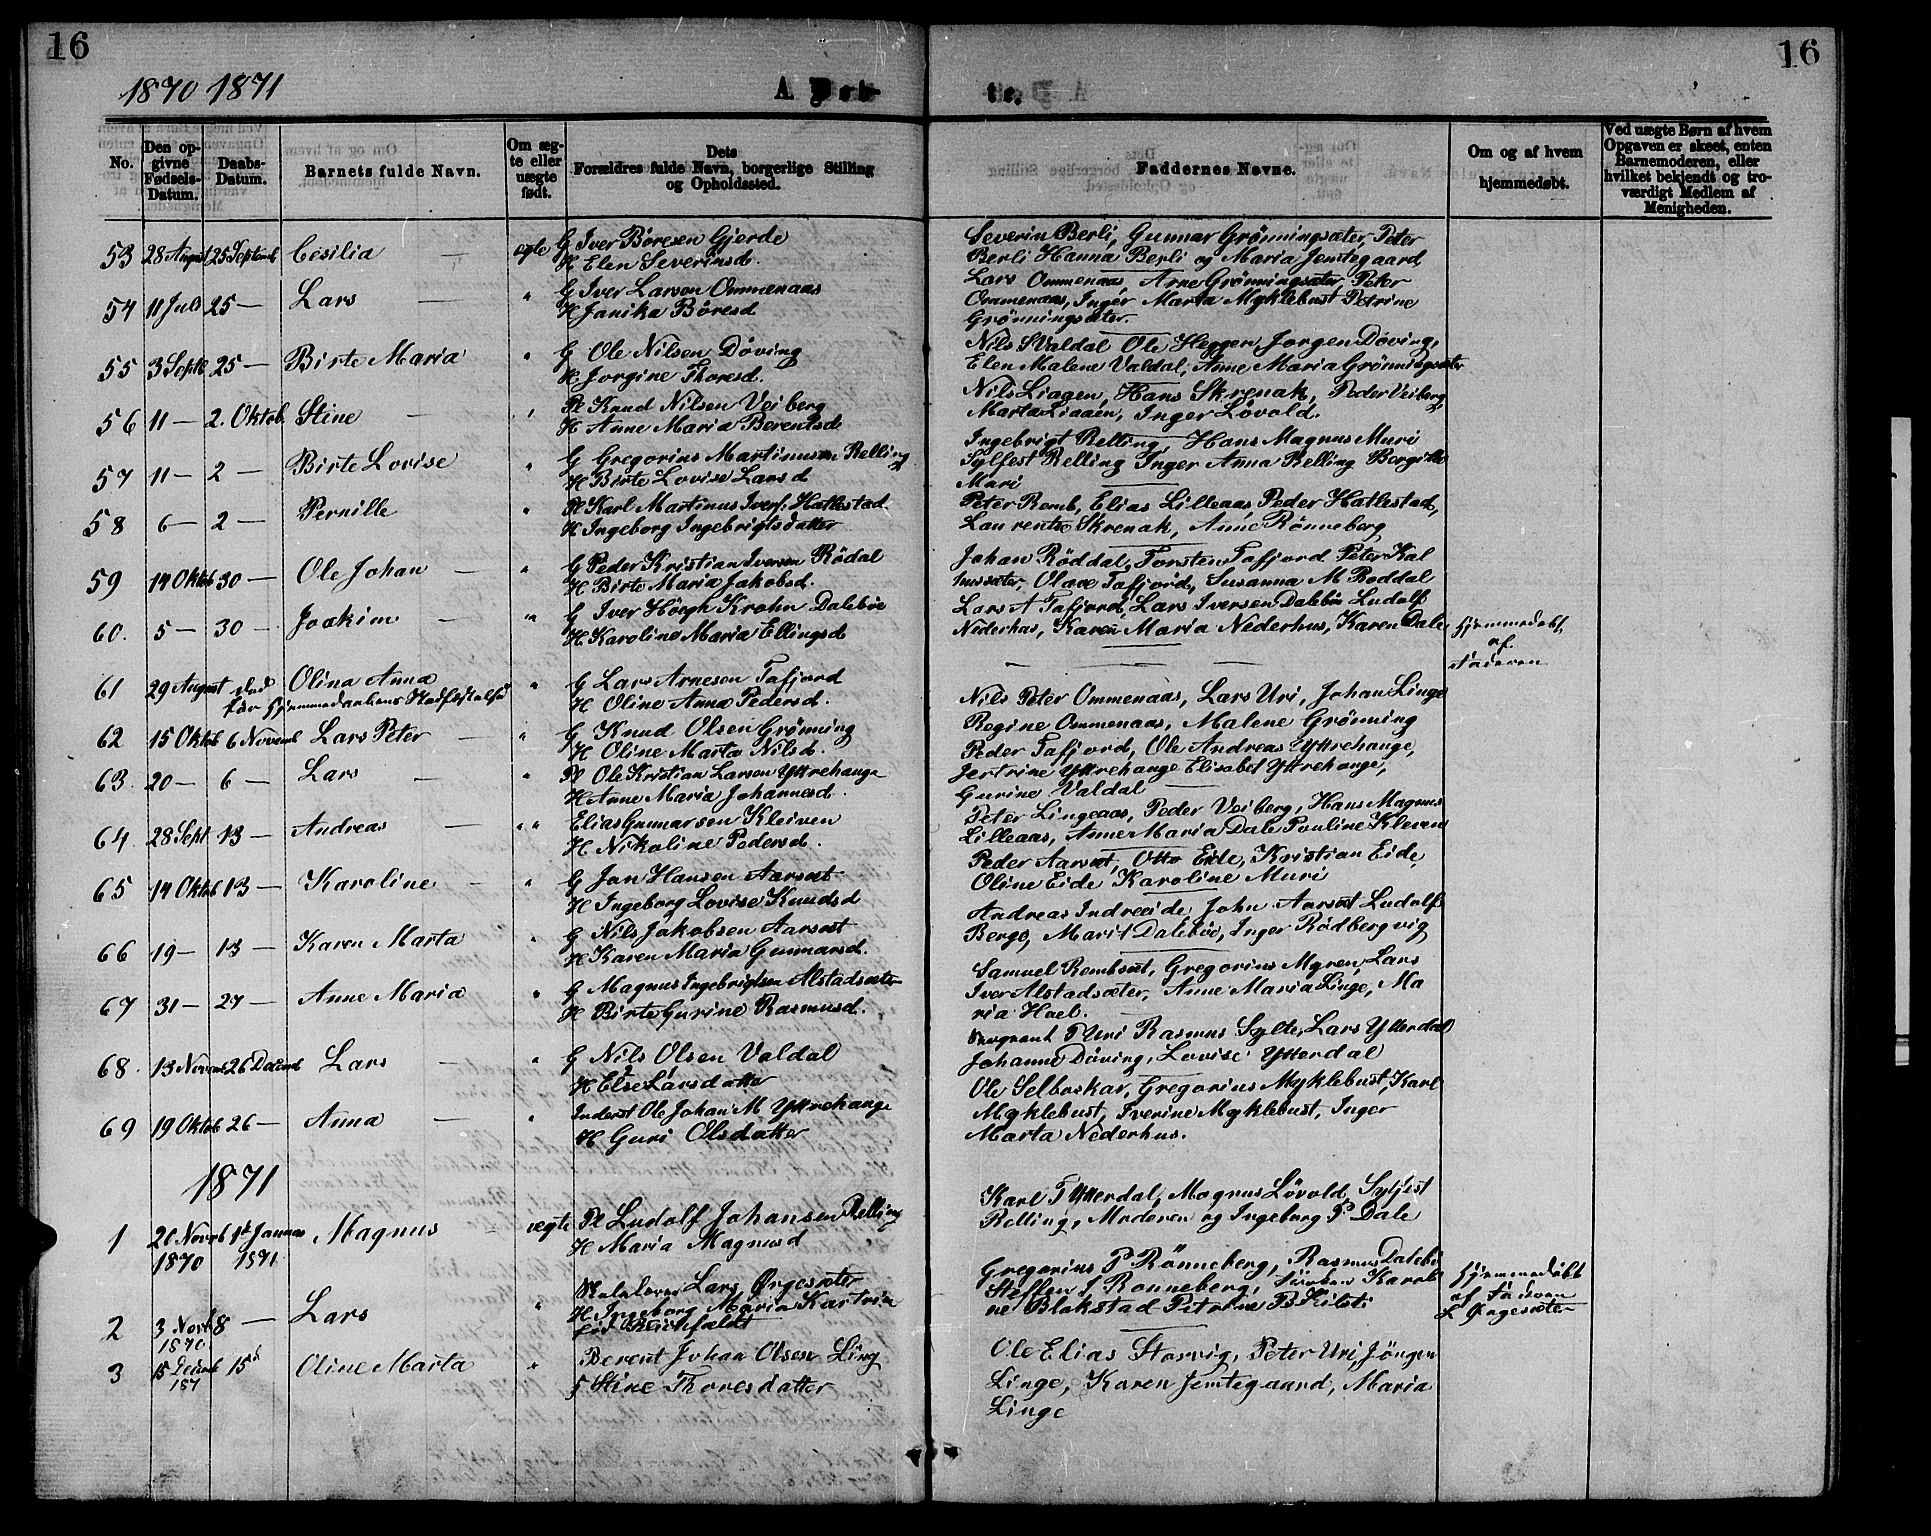 16
16
1870 1871
A. Døb-
te.
No.
Den op-
givne
Fødsels-
Datum.
Daabs-
Datum.
Barnets fulde Navn.
Om æg-
te eller
uægte
født.
Dets
Forældres fulde Navn, borgerlige Stilling
og Opholdssted.
Faddernes Navne.
Om og af hvem
hjemmedøbt.
Ved uægte Børn af hvem
Opgaven er skeet, enten
Barnemoderen, eller
hvilket bekjendt og tro-
værdigt Medlem af
Menigheden.
53 28 August 25 Septemb Cesilia — ægte G Iver Børesen Gjerde
H Elen Severinsd.
Severin Berli, Gunnar Grönningsæter, Peter
Berli Hanna Berli og Maria Jemtegaard
54 11 Juli 25 — Lars — " G Iver Larsen Ommenaas
H Janika Børesd
Lars Ommenaas, Arne Grönningsæter, Peter
Ommenaas, Inger Marta Myklebust Petrine
Grönningsæter.
55 3 Septb 25 — Birte Maria " G Ole Nilsen Döving
H Jorgine Thoresd.
Nils S Valdal Ole Heggen Jorgen Döving,
Elen Malene Valdal, Anne Maria Grönningsæter
56 11 — 2. Oktob. Stine — " Pl Knud Nilsen Veiberg
H Anne Maria Berentsd
Nils Liagen, Hans Skrenak, Peder Veiberg,
Marta Liaaen, Inger Lövold.
57 11 — 2 — Birte Lovise " G Gregorius Martinusen Relling
H Birte Lovise Larsd
Ingebrigt Relling, Hans Magnus Muri
Sylfest Relling Inger Anna Relling Borgitte
Muri
58 6 — 2 — Pernille " Pl Karl Martinus Ivers. Hatlestad
H Ingeborg Ingebrigtsdatter
Peter Remb, Elias Lilleaas Peder Hatlestad,
Laurentse Skrenak, Anne Rönneberg
59 14 Oktob 30 — Ole Johan — " G Peder Kristian Iversen Rödal
H Birte Maria Jakobsd.
Johan Röddal, Torsten Tafjord Peter Kal
hussæter, Olave Tafjord, Susanna M Roddal
60. 5 — 30 — Joakim — " G Iver Höegh Krohn Dalebøe
H Karoline Maria Ellingsd
Lars A Tafjord, Lars Iversen Dalebøe Ludolf
Nederhus, Karen Maria Nederhus, Karen Dale
Hjemmedøbt
af
Faderen
61 29 August død Olina Anna " G Lars Arnesen Tafjord
før Hjemmedaabens Stadfæstelse H Oline Anna Pedersd.
62 15 Oktob 6 Novemb Lars Peter — " G Knud Olsen Grönning
H Oline Marta Nilsd.
Nils Peter Ommenaas, Lars Uri, Johan Linge
Regine Ommenaas, Malene Grönning
63. 20 — 6 — Lars — " Pl Ole Kristian Larsen Yttrehange
H Anne Maria Johannesd.
Peder Tafjord, Ole Andreas Yttrehange,
Jertrine Yttrehange Elisabet Yttrehange,
Gurine Valdal
64. 28 Sept 13 — Andreas — " " Elias Gunnarsen Kleiven
H Nikoline Pedersd.
Peter Lingeaas, Peder Veiberg, Hans Magnus
Lilleaas, Anne Maria Dale Pouline Kleven
65 14 Oktob 13 — Karoline — " G Jon Hansen Aarsæt
H Ingeborg Lovise Knudsd
Peder Aarsæt, Otto Eide, Kristian Eide
Oline Eide Karoline Muri
66 19 — 13 — Karen Marta " G Nils Jakobsen Aarsæt
H Karen Maria Gunnarsd.
Andreas Indreeide, John Aarsæt Ludolf
Berge, Marit Dalebøe, Inger Rödbergvig
67 31 — 27 — Anne Maria " G Magnus Ingebrigtsen Alstadsæter
H Birte Gurine Rasmusd.
Samuel Rembsæt, Gregorius Myren, Lars
Iver Alstadsæter, Anne Maria Linge, Ma
ria Hoel.
68. 13 Novemb 26 Decemb Lars — " G Nils Olsen Valdal
H Else Larsdatter
P Uri Rasmus Sylte, Lars Ytterdal
Johanne Döving, Lovise Ytterdal
69 19 Oktob 26 — Anna — " Inderst Ole Johan M Yttrehange
H Guri Olsdatter
Ole Selboskar, Gregorius Myklebust, Karl
Myklebust, Iverine Myklebust, Inger
Marta Nederhus.
1871
1 20 Novb 1st Januar Magnus — uægte Pl Ludolf Johansen Relling
1870 1871 H Maria Magnusd
Karl T Ytterdal, Magnus Lövold, Syljest
Relling, Moderen og Ingeborg P Dale
2 3 Novb 8 — Lars " Lars Ørgesæter
1870 H Ingeborg Maria Katrin
Gregorius P Rönneberg, Rasmus Dalebø
Steffen J Ronneberg, Karoli
ne Blakstad Petrine B Kilsti
Hjemmedøbt
af Faderen
L Ørgesæter
3 15 Decemb 15d Oline Marta " Berent Johan Olsen Ling
187 H Stine Thoresdatter
Ole Elias Storvig, Peter Uri, Jörgen
Linge, Karen Jemtegaard, Maria
Linge